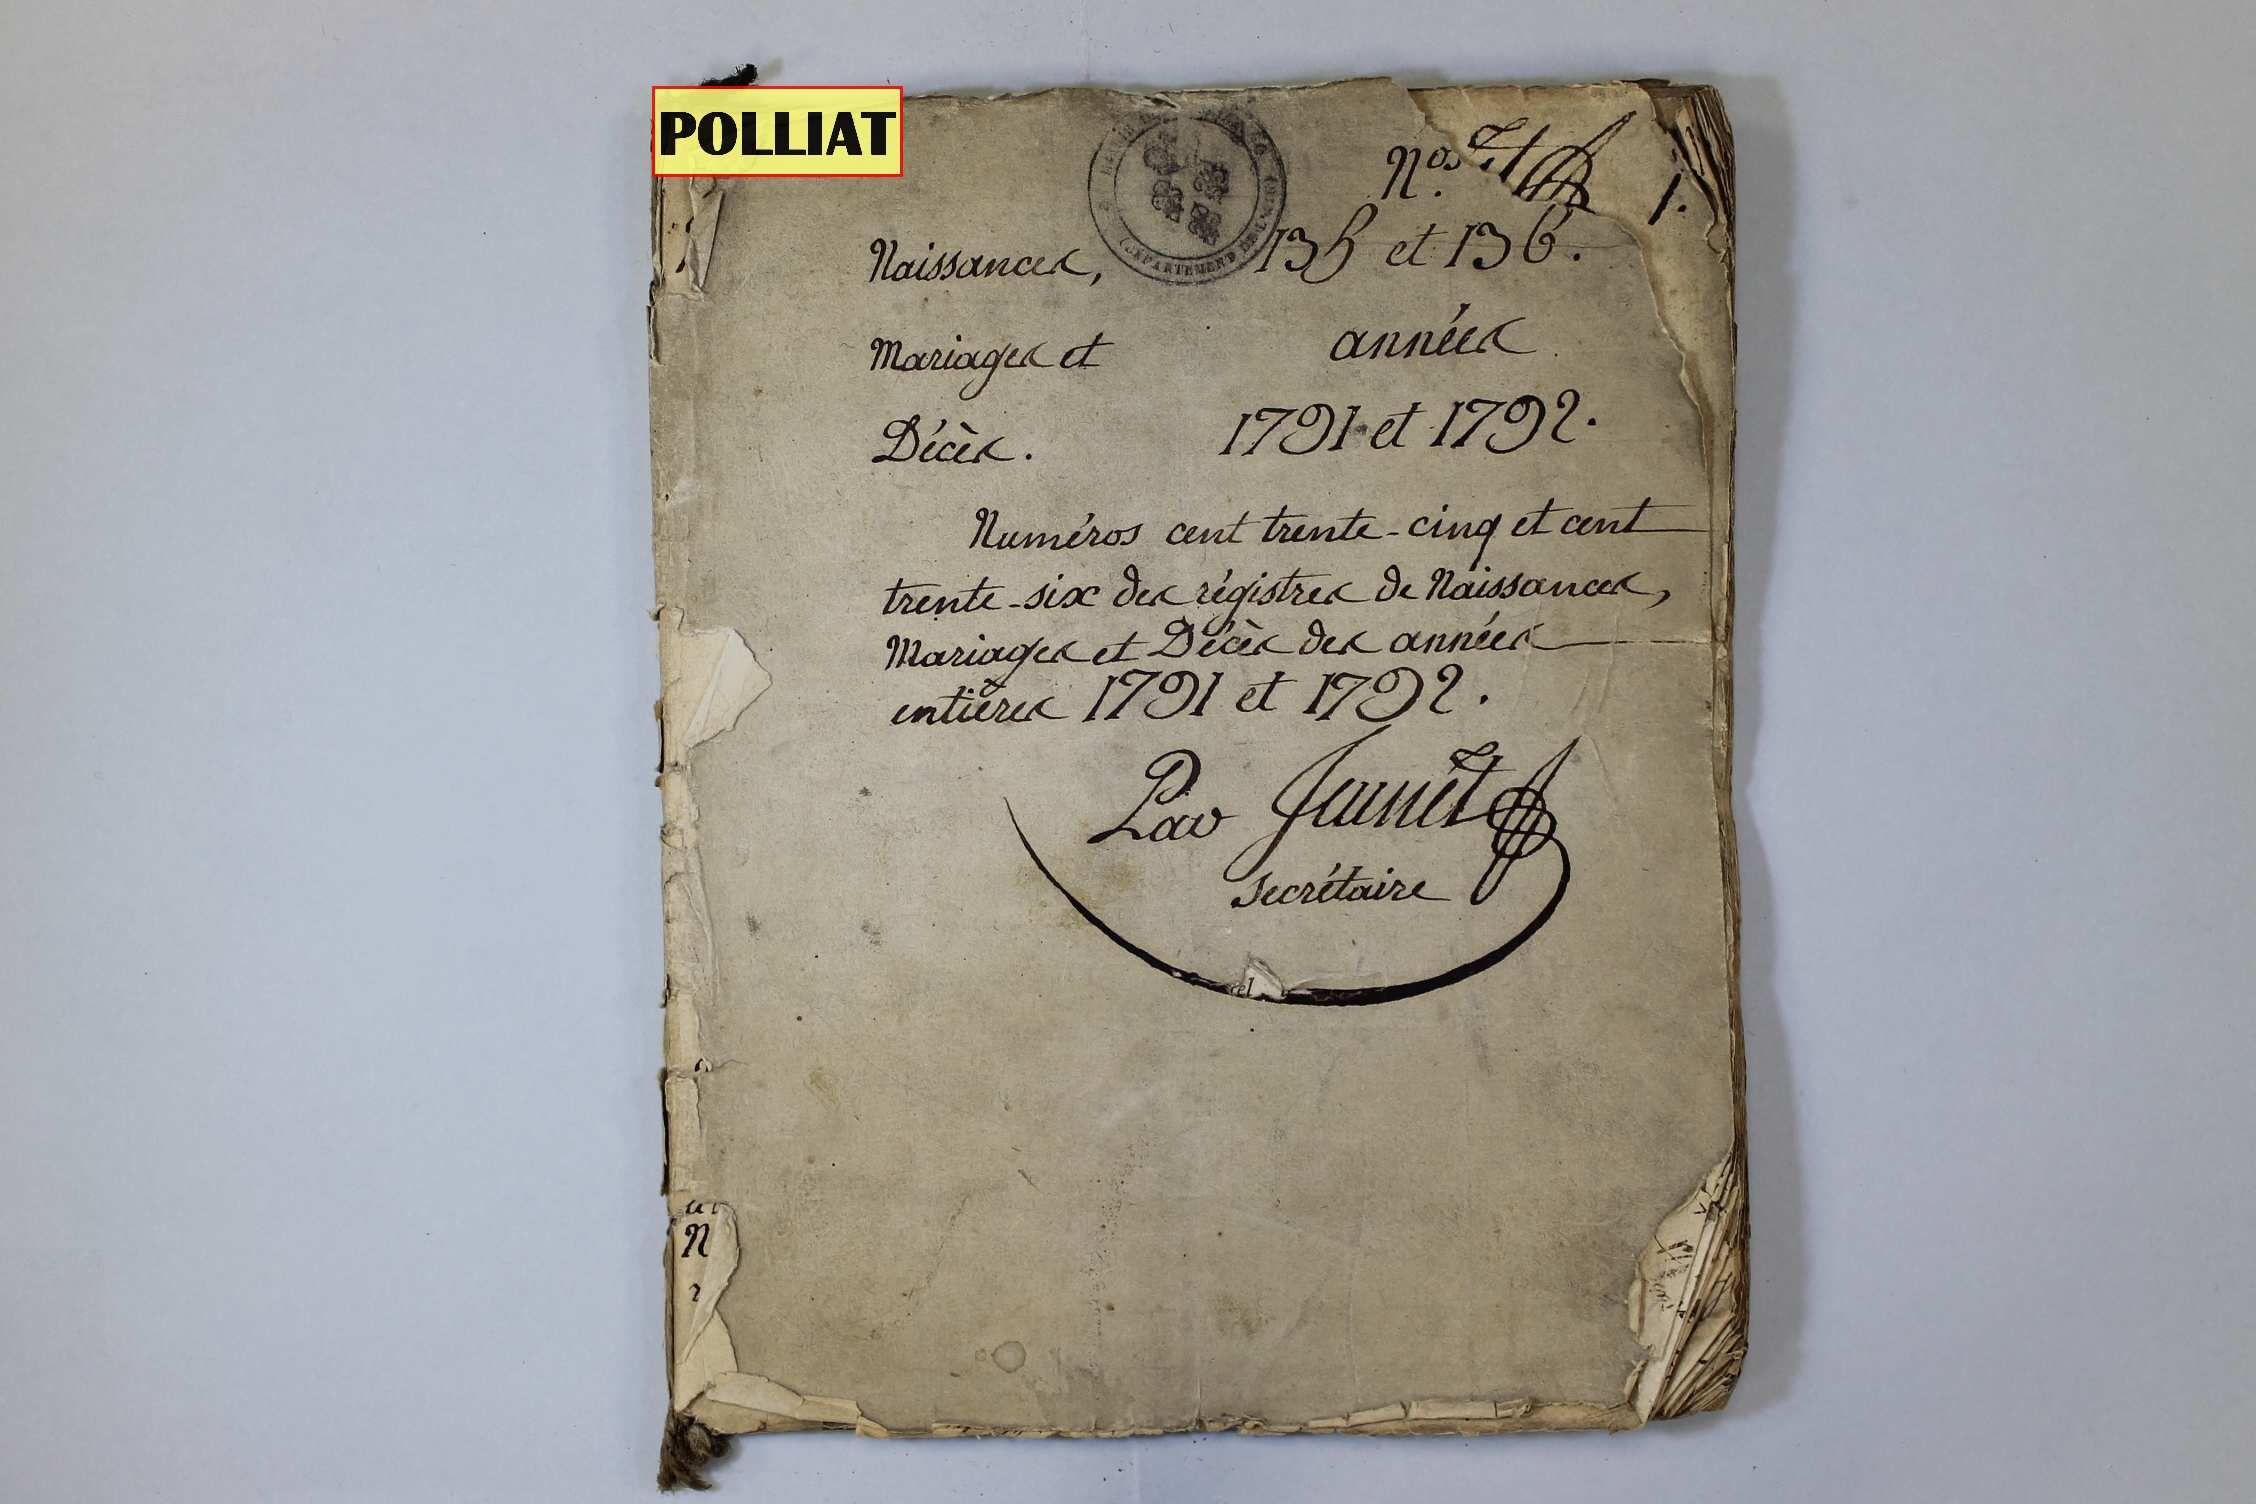 POLLIAT
Nos
1.
Naissances, 135 et 136.
Mariages et années
Décès. 1791 et 1792.
Numéros cent trente-cinq et cent
trente-six des régistres de Naissances,
Mariages et Décès des années
entières 1791 et 1792.
secrétaire
N
2